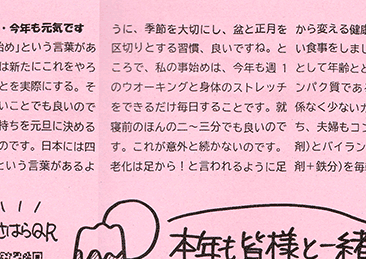 ・今年も元気です
始め」という言葉があ
は新たにこれをやろ
とを実際にする。そ
いことでも良いので
持ちを元旦に決める
のです。日本には四
という言葉があるよ
うに、季節を大切にし、盆と正月を
区切りとする習慣、良いですね。と
ころで、私の事始めは、今年も週 1
のウオーキングと身体のストレッチ
をできるだけ毎日することです。就
寝前のほんの二〜三分でも良いので
す。これが意外と続かないのです。
老化は足から！と言われるように足
から変える健康
い食事をしまし
として年齢とと
ンパク質である
係なく少ないカ
ち、夫婦もコン
剤）とバイラン
剤＋鉄分）を毎
さはらQR
本年も皆様と一緒